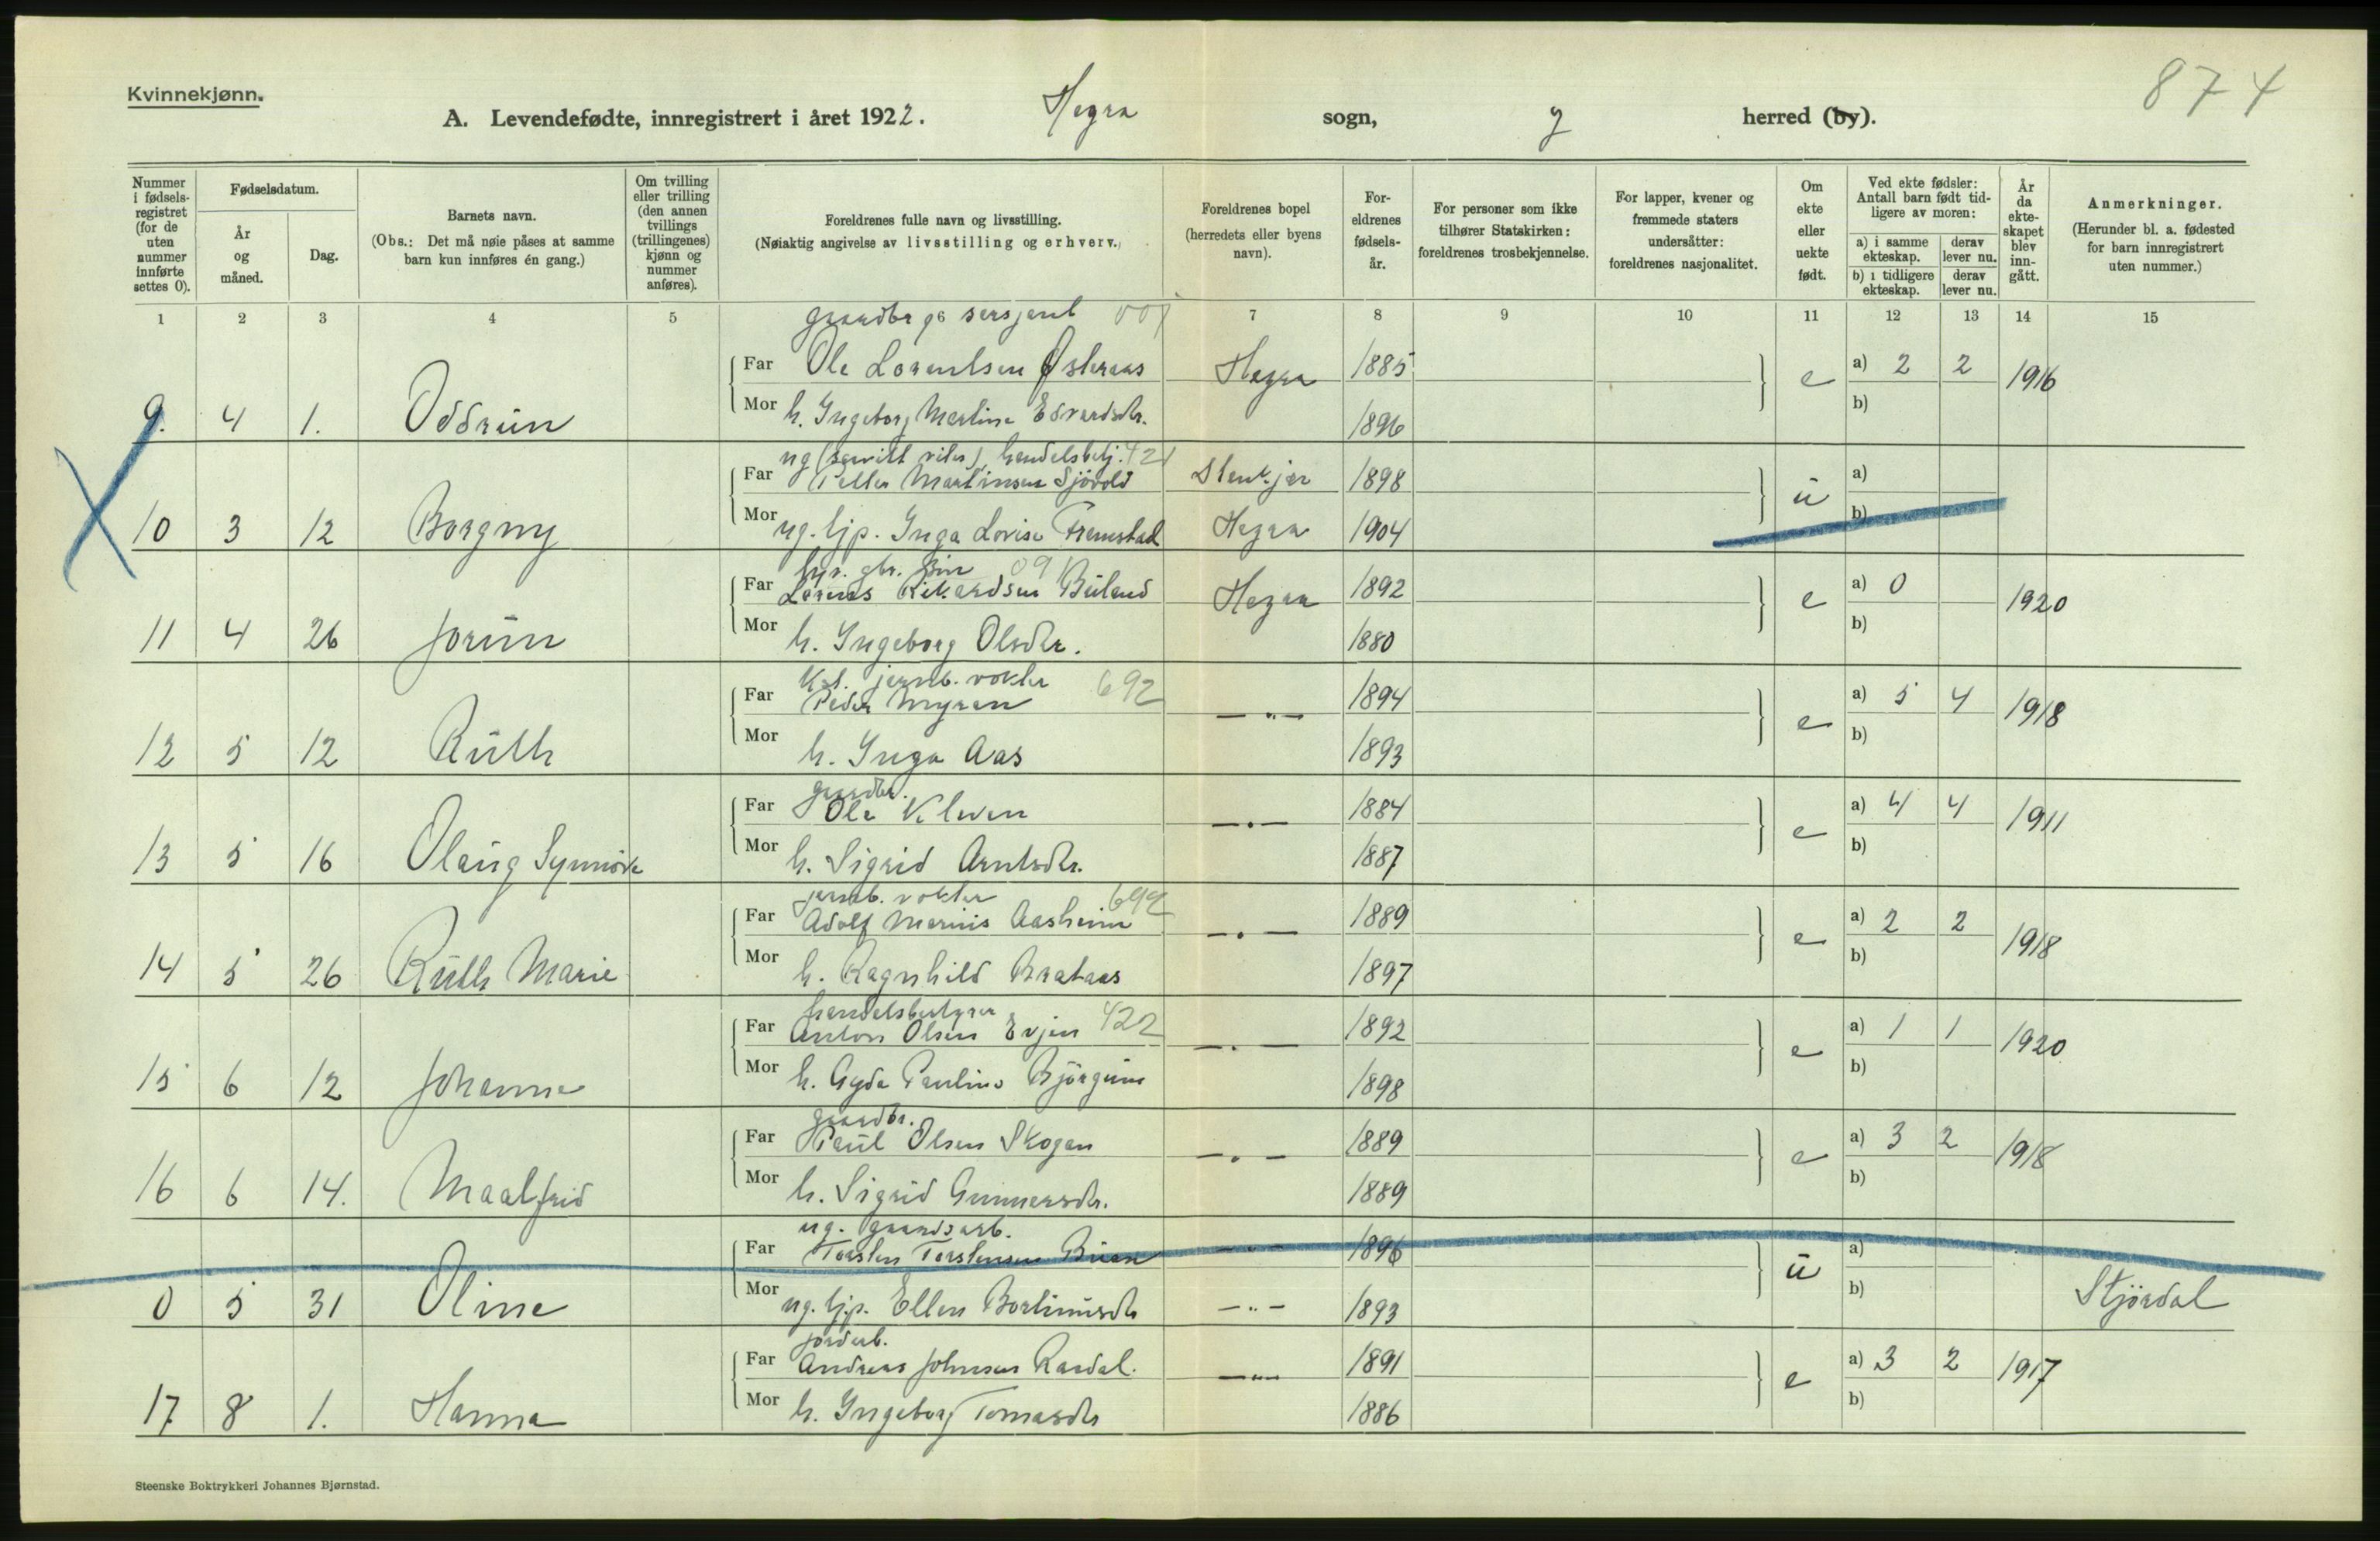 Kvinnekjønn.
874
A. Levendefødte, innregistrert i året 1922. Hegra sogn, g herred (by).
Nummer i fødselsregistret (for de uten nummer innførte settes 0).
Fødselsdatum.
År og måned.
Dag.
Barnets navn.
(Obs.: Det må nøie påses at samme barn kun innføres én gang.)
Om tvilling eller trilling (den annen tvillings (trillingenes) kjønn og nummer anføres).
Foreldrenes fulle navn og livsstilling.
(Nøiaktig angivelse av livsstilling og erhverv.)
Foreldrenes bopel (herredets eller byens navn).
Foreldrenes fødselsår.
For personer som ikke tilhører Statskirken: foreldrenes trosbekjennelse.
For lapper, kvener og fremmede staters undersåtter: foreldrenes nasjonalitet.
Om ekte eller uekte født.
Ved ekte fødsler: Antall barn født tidligere av moren:
a) i samme ekteskap. derav lever nu.
b) i tidligere ekteskap. derav lever nu.
År da ekteskapet blev inngått.
Anmerkninger.
(Herunder bl. a. fødested for barn innregistrert uten nummer.)
1 2 3 4 5 7 8 9 10 11 12 13 14 15
gaardbr og sersjant
Far Ole Lorentsen Østeraas Hegra 1885 e a) 2 2 1916
9. 4 1. Oddrun Mor h. Ingeborg Martine Edvardsdtr. 1896 b)
ug handelsbetj. 421
Far Petter Martinsen Sjövold Stenkjær 1898 u a)
10 3 12 Borgny Mor ug. tjp. Inga Lovise Fremstad Hegra 1904 b)
gbr. 09
Far Lorents Rikardsen Buland Hegra 1892 e a) 0 1920
11 4 26 Jorun Mor h. Ingeborg Olsdtr. 1880 b)
jernb. vokter 692
Far Peder Myran —"— 1894 e a) 5 4 1918
12 5 12 Ruth Mor h. Inga Aas 1893 b)
gaardbr.
Far Ole Kleven —"— 1884 e a) 4 4 1911
13 5 16 Olaug Synnöve Mor h. Sigrid Arntsdtr. 1887 b)
jernb. vokter 692
Far Adolf Marius Aasheim —"— 1889 e a) 2 2 1918
14 5 26 Ruth Marie Mor h. Ragnhild Brataas 1897 b)
handelsbestyrer 422
Far Anton Olsen Evjen —"— 1892 e a) 1 1 1920
15 6 12 Johanne Mor h. Gyda Pauline Björgum 1898 b)
gaardbr.
Far Paul Olsen Skogan —"— 1889 e a) 3 2 1918
16 6 14. Maalfrid Mor h. Sigrid Gunnarsdtr. 1889 b)
ug. gaardsarb.
Far Torsten Torstensen Buan —"— 1896 u a)
0 5 31 Oline Mor ug. tjp. Ellen Bortinusdtr —"— 1893 b) Stjördal
jordarb.
Far Andreas Johnsen Raadal. —"— 1891 e a) 3 2 1917
17 8 1. Hanna Mor h. Ingeborg Tomasdtr 1886 b)
Steenske Boktrykkeri Johannes Bjørnstad.